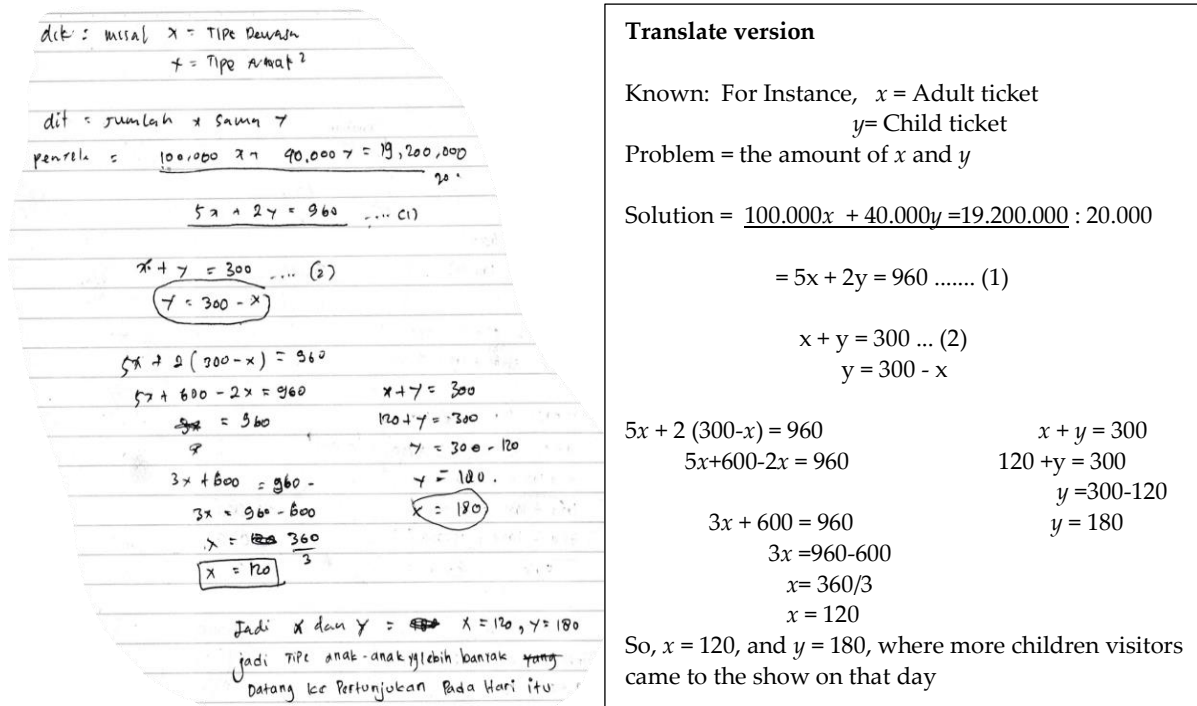 dik : misal x = Tipe Dewasa
y = Tipe Anak²
dit = Jumlah x sama y
100,000 x + 40.000 y = 19,200,000
20.
5x + 2y = 960 .... (1)
x + y = 300 .... (2)
y = 300 - x
5x + 2 (300-x) = 960
5x + 600 - 2x = 960
= 960
3x + 600 = 960 -
3x = 960 - 600
x = 360
3
x = 120
x + y = 300
120 + y = 300
y = 300 - 120
y = 180.
x = 180
Jadi x dan y = x = 120, y = 180
jadi Tipe anak-anak yg lebih banyak
Datang ke Pertunjukan Pada Hari itu
Translate version
Known: For Instance, x = Adult ticket
y= Child ticket
Problem = the amount of x and y
Solution = 100.000x + 40.000y =19.200.000 : 20.000
= 5x + 2y = 960 ....... (1)
x + y = 300 ... (2)
y = 300 - x
5x + 2 (300-x) = 960
5x+600-2x = 960
3x + 600 = 960
3x =960-600
x= 360/3
x = 120
x + y = 300
120 +y = 300
y =300-120
y = 180
So, x = 120, and y = 180, where more children visitors
came to the show on that day